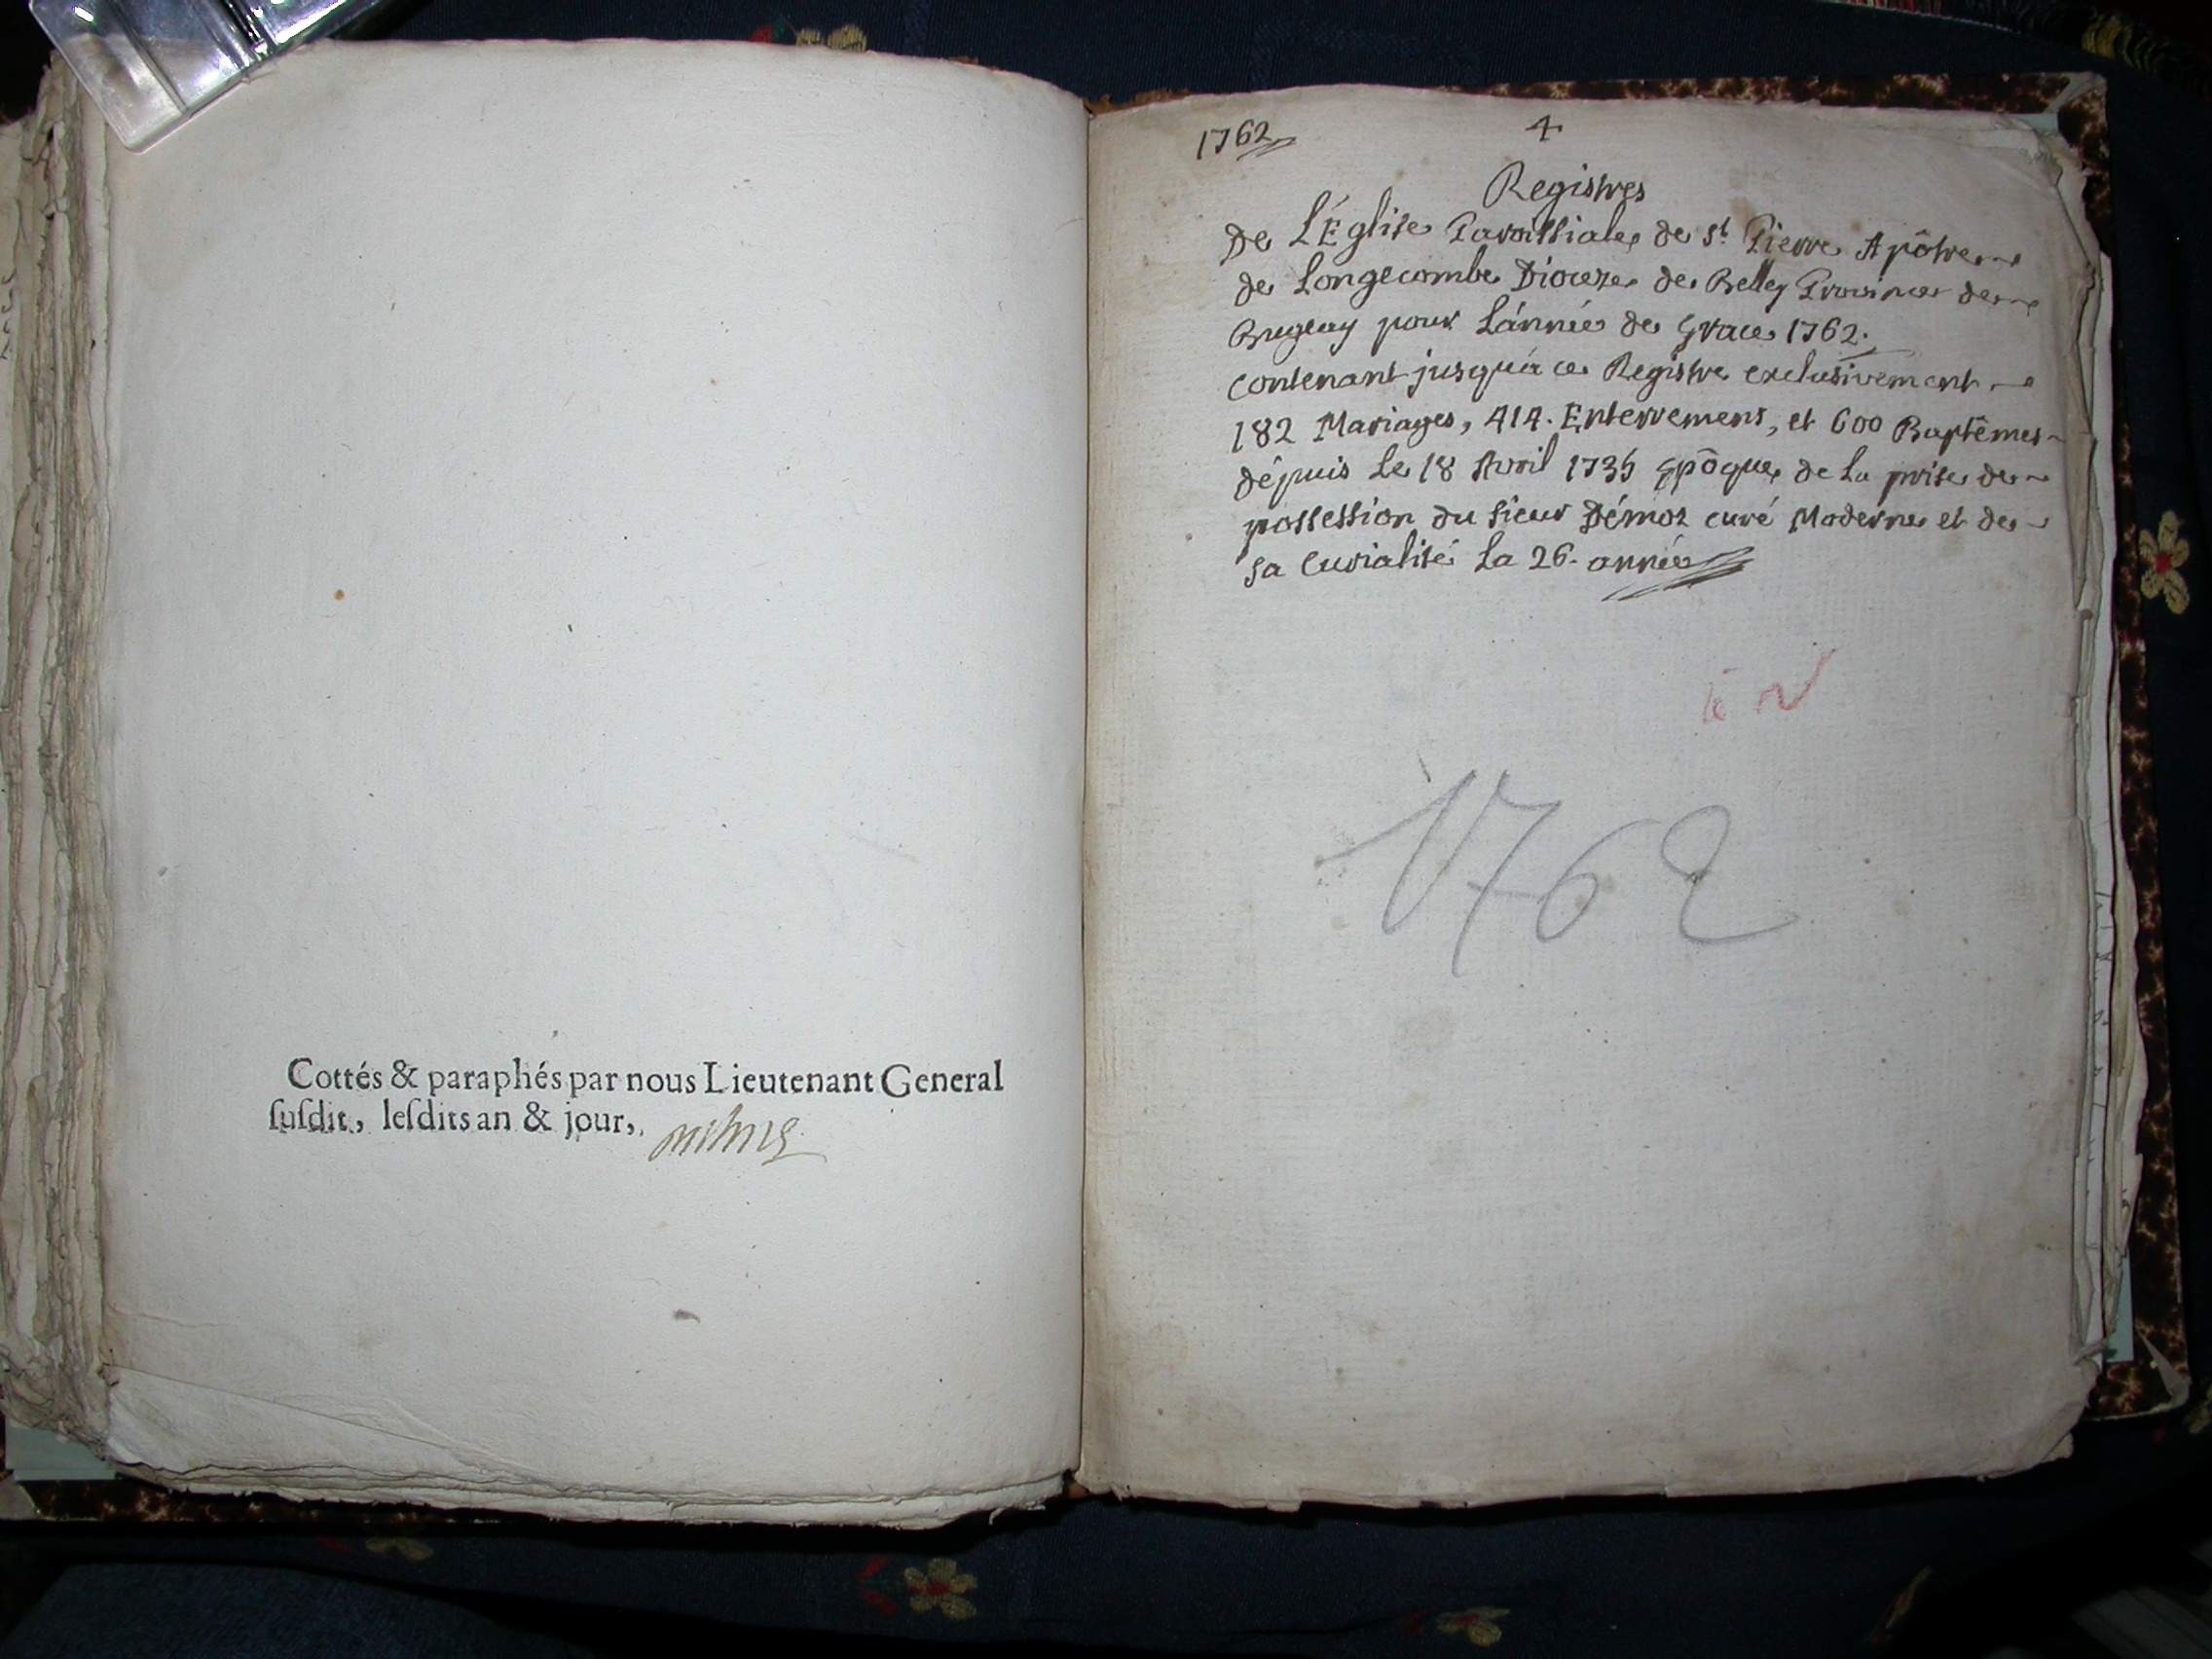 Cottés & paraphés par nous Lieutenant General
ſuſdit, leſdits an & jour,
1762
4
Registres
De L'Église Paroissiale de St Pierre Apôtre
de Longecombe Dioceze de Belley Province de
Bugeay pour L'année de Grace 1762.
contenant jusqu'à ce Registre exclusivement
182 Mariages, 414. Enterremens, et 600 Baptêmes
dépuis Le 18 Avril 1735 Epôque de La prise de
possession du Sieur Démoz curé Moderne et de
sa Curialité La 26. année
1762